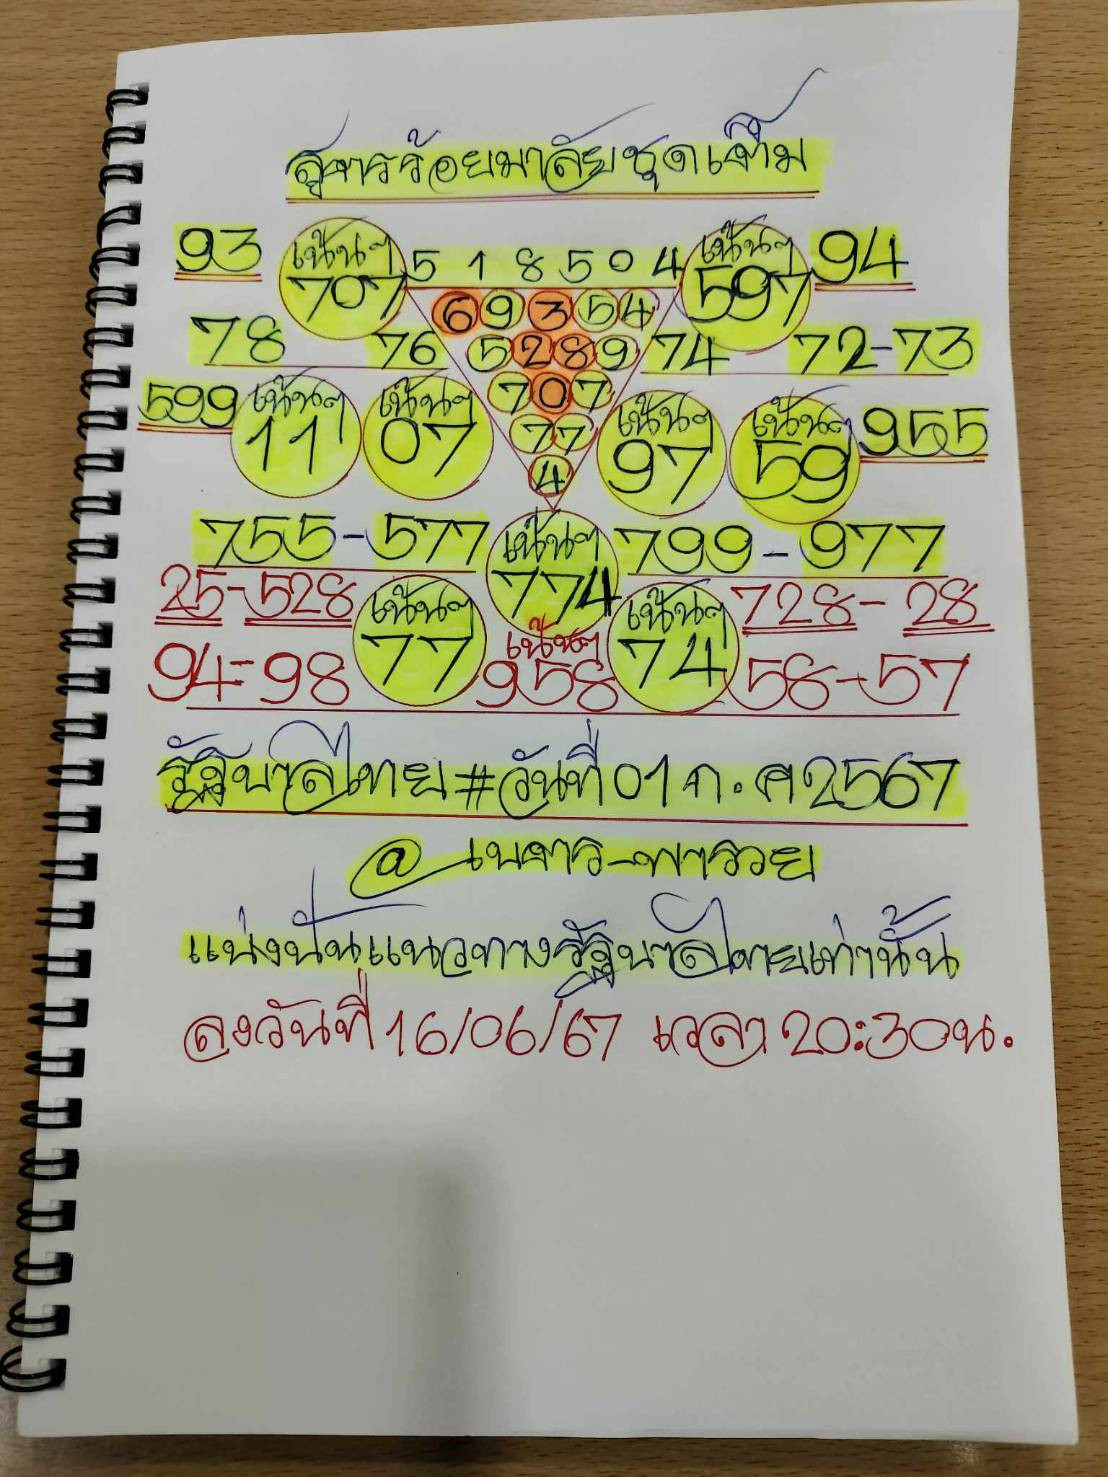 สูตรร้อยมาลัยชุดเต็ม
93 เน้นๆ 707 5 1 8 5 0 4 เน้นๆ 597 94
6 9 3 5 4
78 76 5 2 8 9 74 72-73
7 0 7
599 เน้นๆ 11 เน้นๆ 07 7 7 เน้นๆ 97 เน้นๆ 59 955
4
755-577 เน้นๆ 774 799-977
25-528 เน้นๆ 77 เน้นๆ 74 728-28
94-98 เน้นๆ 958 58-57
รัฐบาลไทย#วันที่01ก.ค2567
@เนตร-พารวย
แบ่งปันแนวทางรัฐบาลไทยเท่านั้น
ลงวันที่16/06/67 เวลา20:30น.